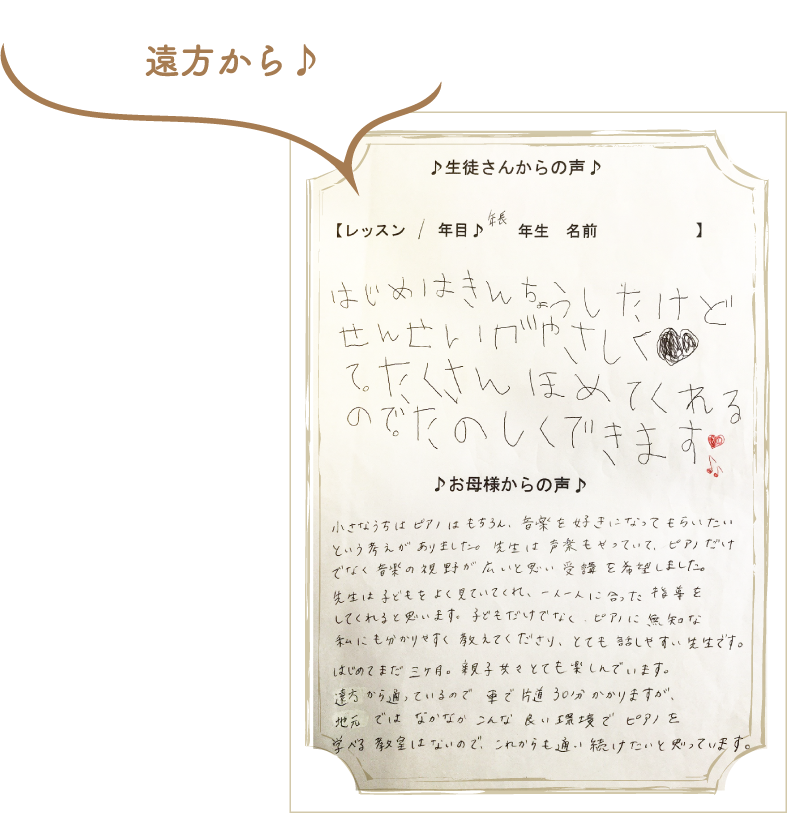 遠方から♪
♪生徒さんからの声♪
【レッスン 1 年目♪ 年長 年生 名前 】
はじめはきんちょうしたけど
せんせいがやさしく
て。たくさんほめてくれる
ので。たのしくできます
♪お母様からの声♪
小さなうちはピアノはもちろん、音楽を好きになってもらいたい
という考えがありました。先生は声楽もやっていて、ピアノだけ
でなく音楽の視野が広いと思い受講を希望しました。
先生は子どもをよく見ていてくれ、一人一人に合った指導を
してくれると思います。子どもだけでなく、ピアノに無知な
私にも分かりやすく教えてくださり、とても話しやすい先生です。
はじめてまだ三ヶ月。親子共々とても楽しんでいます。
遠方から通っているので車で片道30分かかりますが、
地元ではなかなかこんな良い環境でピアノを
学べる教室はないので、これからも通い続けたいと思っています。